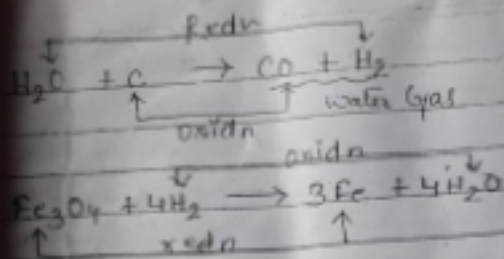 Redn
H₂O + C → CO + H₂
water Gas
oxidn
oxidn
Fe₃O₄ + 4H₂ → 3Fe + 4H₂O
redn